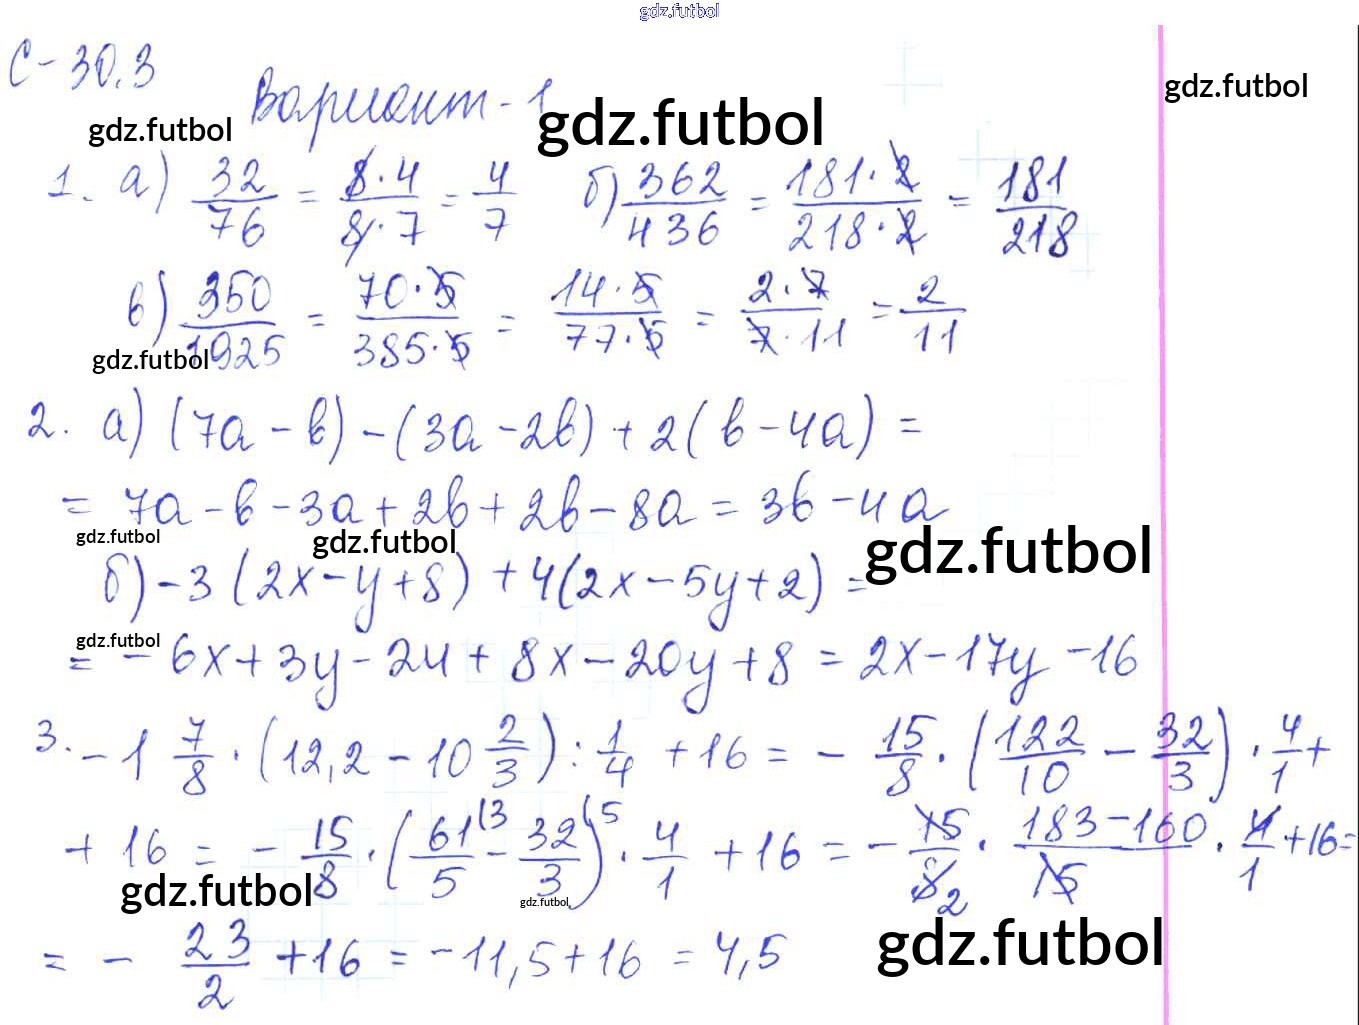 gdz.futbol
С-30.3
gdz.futbol
Вариант-1
gdz.futbol
gdz.futbol
1. а) 32/76 = 8·4/8·7 = 4/7 б) 362/436 = 181·2/218·2 = 181/218
в) 350/1925 = 70·5/385·5 = 14·5/77·5 = 2·7/7·11 = 2/11
gdz.futbol
2. а) (7a - b) - (3a - 2b) + 2(b - 4a) =
= 7a - b - 3a + 2b + 2b - 8a = 3b - 4a
gdz.futbol gdz.futbol gdz.futbol
б) -3(2x - y + 8) + 4(2x - 5y + 2) =
gdz.futbol
= -6x + 3y - 24 + 8x - 20y + 8 = 2x - 17y - 16
3. -1 7/8 · (12,2 - 10 2/3) : 1/4 + 16 = - 15/8 · (122/10 - 32/3) · 4/1 +
+ 16 = - 15/8 · (61/5 (3 - 32/3 (5) · 4/1 + 16 = - 15/8 2 · 183-160/15 · 4/1 + 16 =
gdz.futbol gdz.futbol gdz.futbol
= - 23/2 + 16 = -11,5 + 16 = 4,5